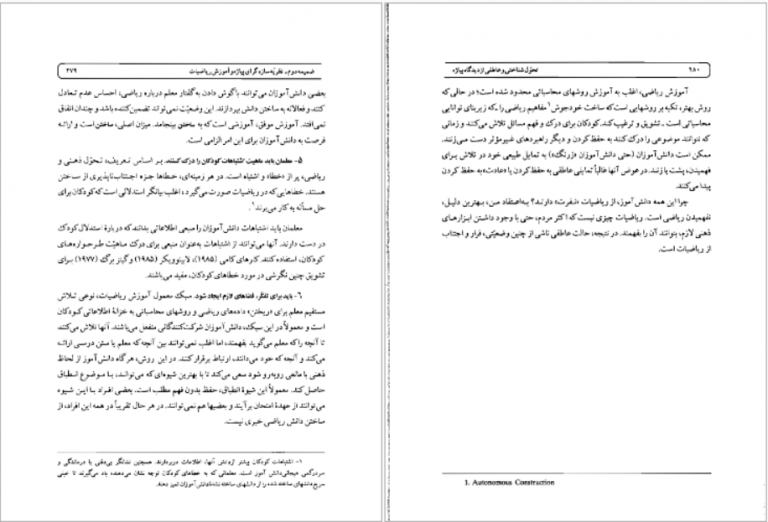 ضمیمه دوم ـ نظریه سازه‌گرای پیاژه و آموزش ریاضیات
۲۷۹
بعضی دانش‌آموزان می‌توانند با گوش دادن به گفتار معلم درباره ریاضی، احساس عدم تعادل
کنند و فعالانه به ساختن دانش بپردازند. این وضعیت نمی‌تواند تضمین‌کننده باشد و چندان اتفاق
نمی‌افتد. آموزش موفق، آموزشی است که به ساختن بینجامد. میزان اصلی، ساختن است و ارائه
فرصت به دانش‌آموزان برای این امر الزامی است.
۵- معلمان باید ماهیت اشتباهات کودکان را درک کنند. بر اساس تعریف، تحوّل ذهنی و
ریاضی، پر از «خطا» و اشتباه است. در هر زمینه‌ای، خطاها جزء اجتناب‌ناپذیری از ساختن
هستند. خطاهایی که در ریاضیات صورت می‌گیرد، اغلب بیانگر استدلالی است که کودکان برای
حل مسأله به کار می‌برند۱.
معلمان باید اشتباهات دانش‌آموزان را منبعی اطلاعاتی بدانند که دربارهٔ استدلال کودک
در دست دارند. آنها می‌توانند از اشتباهات به‌عنوان منبعی برای درک ماهیّت طرحواره‌های
کودکان، استفاده کنند. کارهای کامی (۱۹۸۵)، لابینوویکز (۱۹۸۵) و گینزبرگ (۱۹۷۷) برای
تشویق چنین نگرشی در مورد خطاهای کودکان، مفید می‌باشند.
۶- باید برای تفکّر، فضاهای لازم ایجاد شود. سبک معمول آموزش ریاضیات، نوعی تلاش
مستقیم معلم برای «ریختن» داده‌های ریاضی و روشهای محاسباتی به خزانهٔ اطلاعاتی کودکان
است و معمولاً در این سبک، دانش‌آموزان شرکت‌کنندگانی منفعل می‌باشند. آنها تلاش می‌کنند
تا آنچه را که معلم می‌گوید بفهمند، اما اغلب نمی‌توانند بین آنچه که معلم یا متن درسی ارائه
می‌کند و آنچه که خود می‌دانند، ارتباط برقرار کنند. در این روش، هرگاه دانش‌آموز از لحاظ
ذهنی با مانعی روبه‌رو شود سعی می‌کند تا با بهترین شیوه‌ای که می‌توانـد، بـا موضوع انطباق
حاصل کند. معمولاً این شیوهٔ انطباق، حفظ بدون فهم مطلب است. بعضی افراد بـا ایـن شیوه
می‌توانند از عهدهٔ امتحان برآیند و بعضیها هم نمی‌توانند. در هر حال تقریباً در همه این افراد، از
ساختن دانش ریاضی خبری نیست.
۱- اشتباهات کودکان بیشتر از دانش آنها، اطلاعات دربردارند. همچنین نشانگر بی‌دقتی یا درماندگی و
سردرگمی هیجانی دانش آموز است. معلمانی که به خطاهای کودکان توجه نشان می‌دهند، یاد می‌گیرند تا عینی
۲۸۰
تحوّل شناختی و عاطفی از دیدگاه پیاژه
آموزش ریاضی، اغلب به آموزش روشهای محاسباتی محدود شده است؛ در حالی که
روش بهتر، تکیه بر روشهایی است که ساخت خودجوش۱ مفاهیم ریاضی را ـ که زیربنای توانایی
محاسباتی است ـ تشویق و ترغیب کند. کودکان برای درک و فهم مسائل تلاش می‌کنند و زمانی
که نتوانند موضوعی را درک کنند به حفظ کردن و دیگر راهبردهای غیرمؤثر دست می‌زنند.
ممکن است دانش‌آموزان (حتی دانش‌آموزان «زرنگ») به تمایل طبیعی خود در تلاش برای
فهمیدن، پشت پا زنند. در عوض آنها غالباً تمایلی عاطفی به حفظ کردن یا «عادت» به حفظ کردن
پیدا می‌کنند.
چرا این همه دانش‌آموز، از ریاضیات «نـفرت» دارنـد؟ بـه‌اعتقاد مـن، بـهترین دلیـل،
نفهمیدن ریاضی است. ریاضیات چیزی نیست که اکثر مردم، حتی با وجود داشتن ابزارهـای
ذهنی لازم، بتوانند آن را بفهمند. در نتیجه، حالت عاطفی ناشی از چنین وضعیتی، فرار و اجتناب
از ریاضیات است.
1. Autonomous Construction